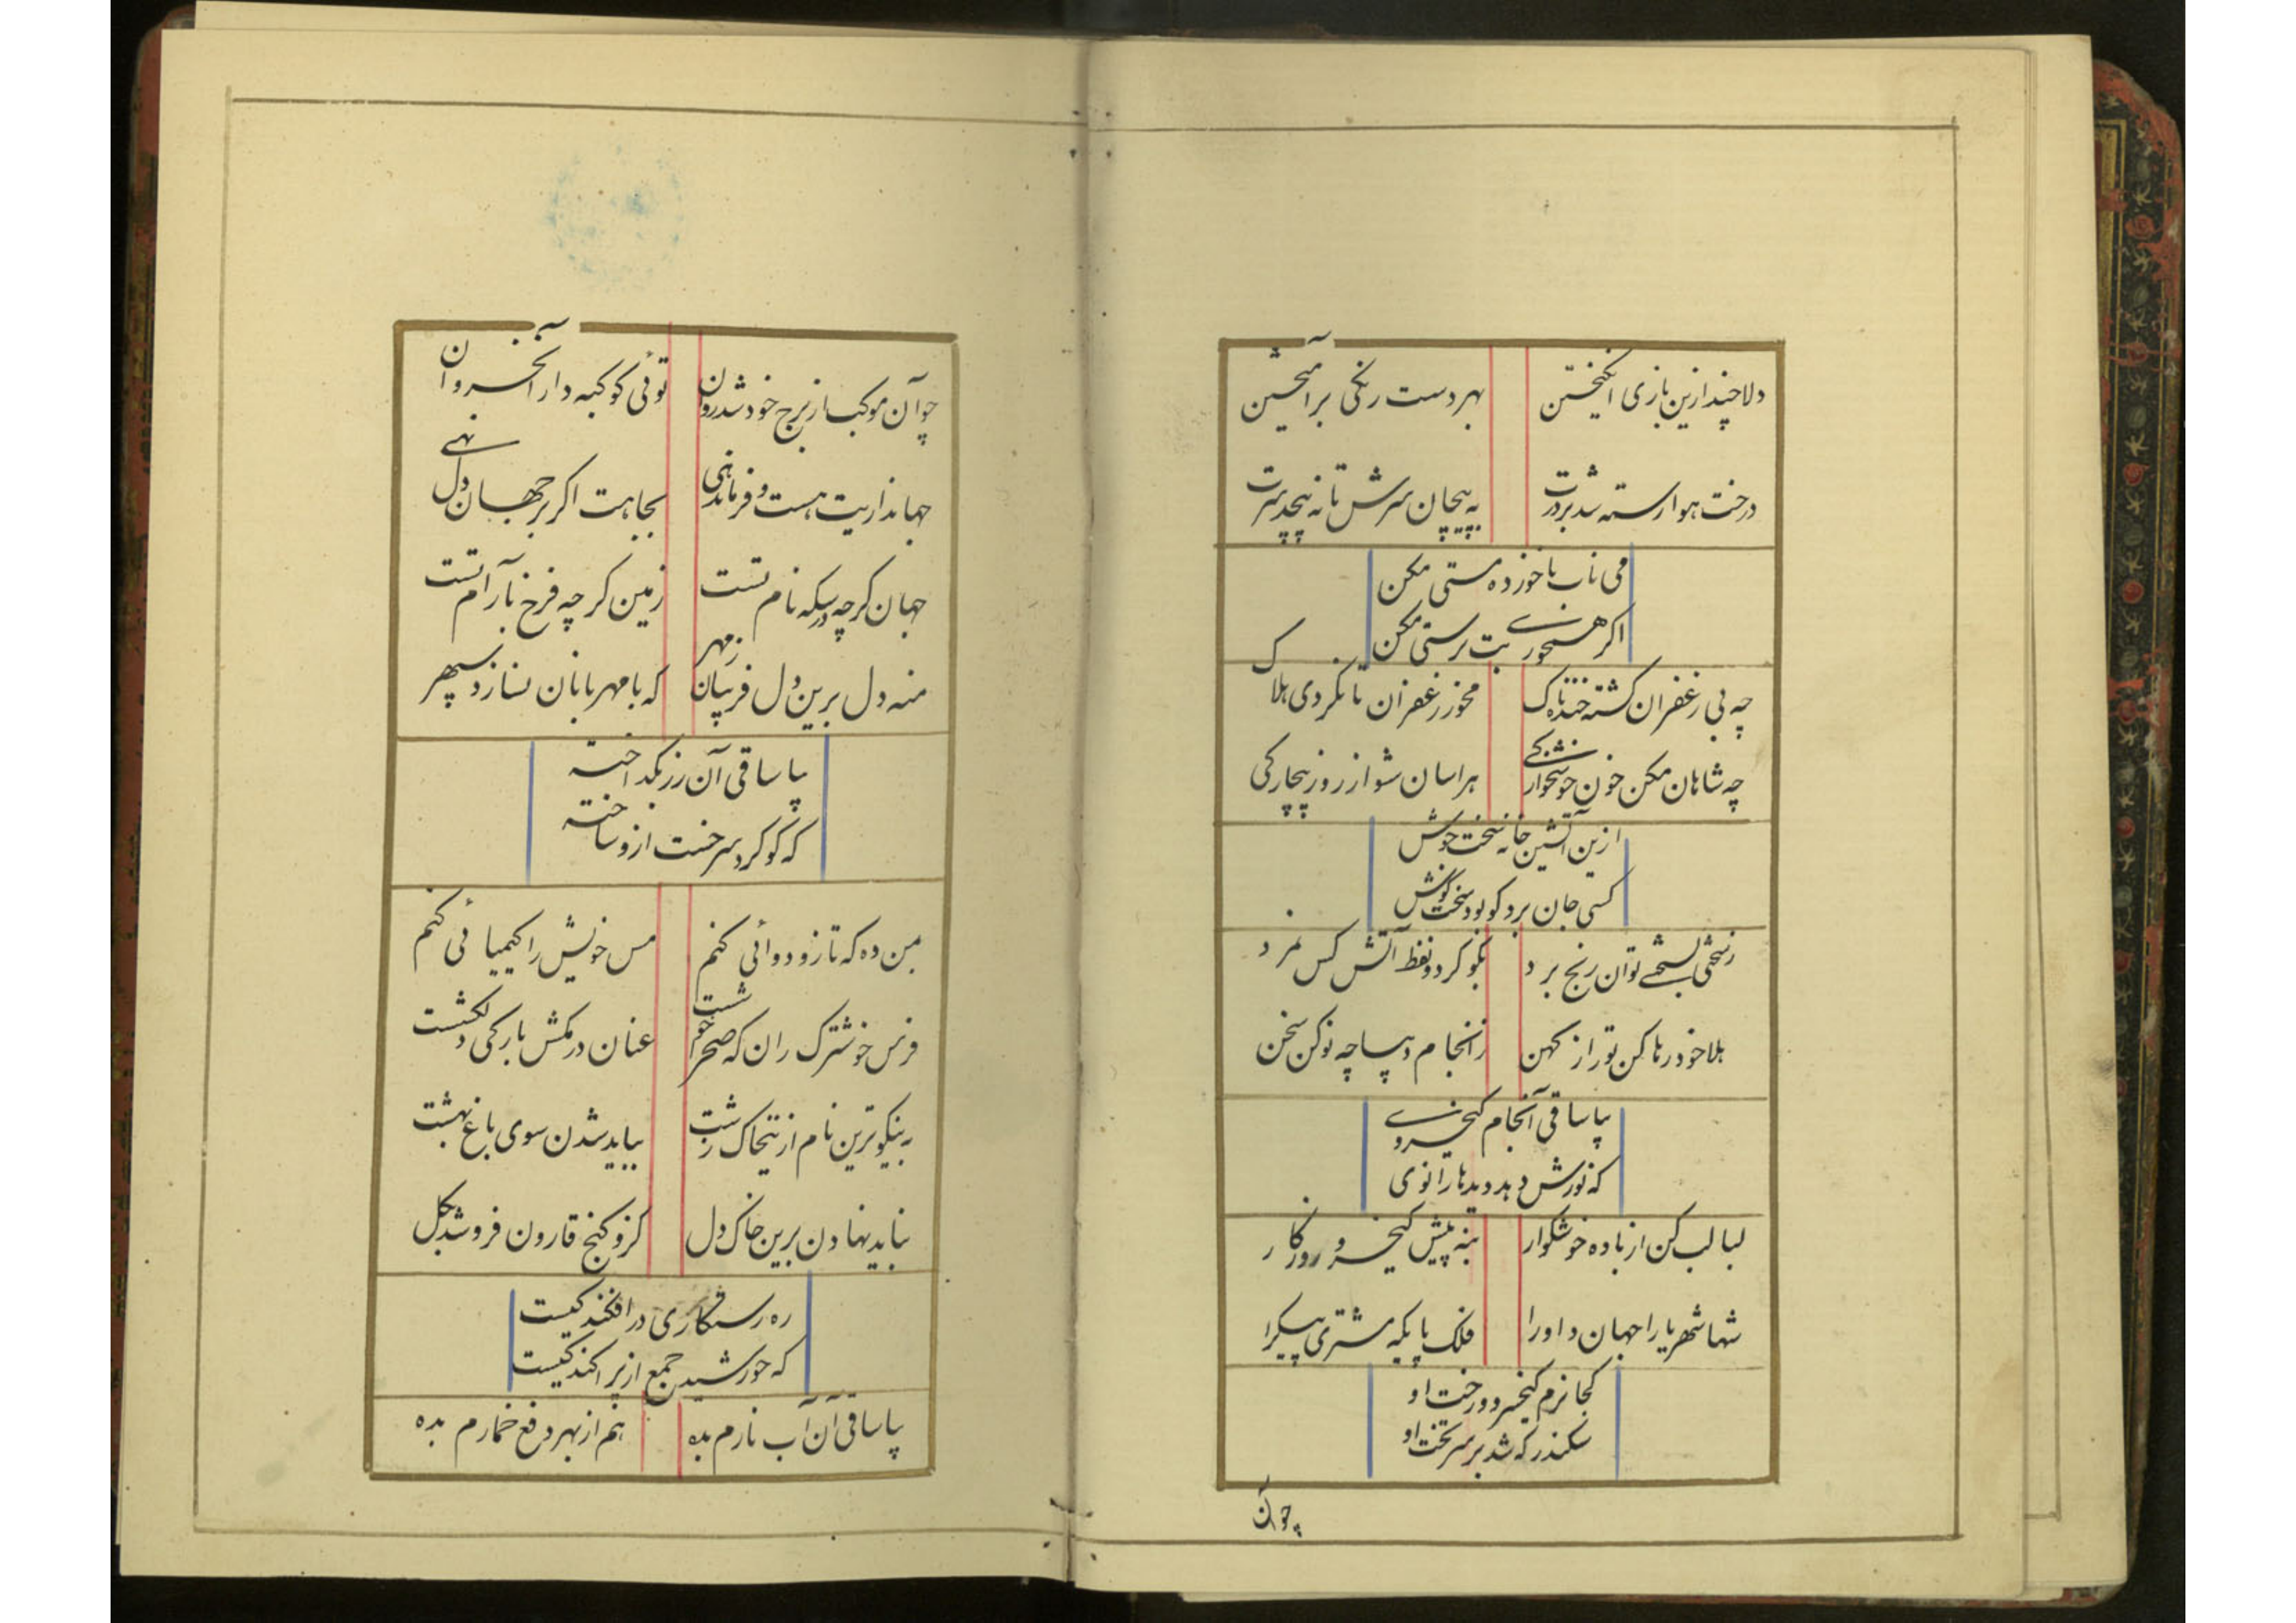 دلا چند ازین بازی انگیختن بهر دست رنگی برآمیختن
درخت هوا رسته شد بردرت به پیچان سرش تا نه پیچد سرت
می ناب ناخورده مستی مکن
اگر میخوری بت پرستی مکن
چه بی زعفران گشته خنده ناک مخور زعفران تا نگردی هلاک
چه شاهان مکن خون خوشخوارگی هراسان شو از روز بیچارگی
ازین آتشین خانه سخت جوش
کسی جان برد کو بود سخت کوش
توان رنج برد بگو کرد و نفط آتش کس نمرد
بلا خود رها کن تو راز کهن ز انجام دیباچه نو کن سخن
بیا ساقی آنجام کیخسروی
که نورش دهد دیدها را نوی
لبالب کن از باده خوشگوار بنه پیش کیخسرو روزگار
شها شهریارا جهان داورا فلک پایکه مشتری پیکرا
کجا بزم کیخسرو و رخت او
سکندر که شد بر سر تخت او
چو آن
چو آن موکب از برج خود شد روان توئی کوکبه دار آنخسروان
جهانداریت هست و فرماندهی بجاهت اگر بر جهان دل نهی
جهان گرچه در سکه نام تست زمین گرچه فرخ بآرام تست
منه دل برین دل فریبان ز مهر که با مهربانان نسازد سپهر
بیا ساقی آن زر بگداخته
که گوگرد سرخست ازو ساخته
بمن ده که تا زو دوائی کنم مس خویش را کیمیائی کنم
فرس خوشترک ران که صحرا خوشست عنان درمکش بارگی دلکشست
به نیکوترین نام ازینخاک زشت بباید شدن سوی باغ بهشت
نباید نهادن برین خاک دل کزو گنج قارون فرو شد بگل
ره رستگاری در افکندگیست
که خورشید جمع از پراکندگیست
بیا ساقی آن آب نارم بده هم از بهر دفع خمارم بده